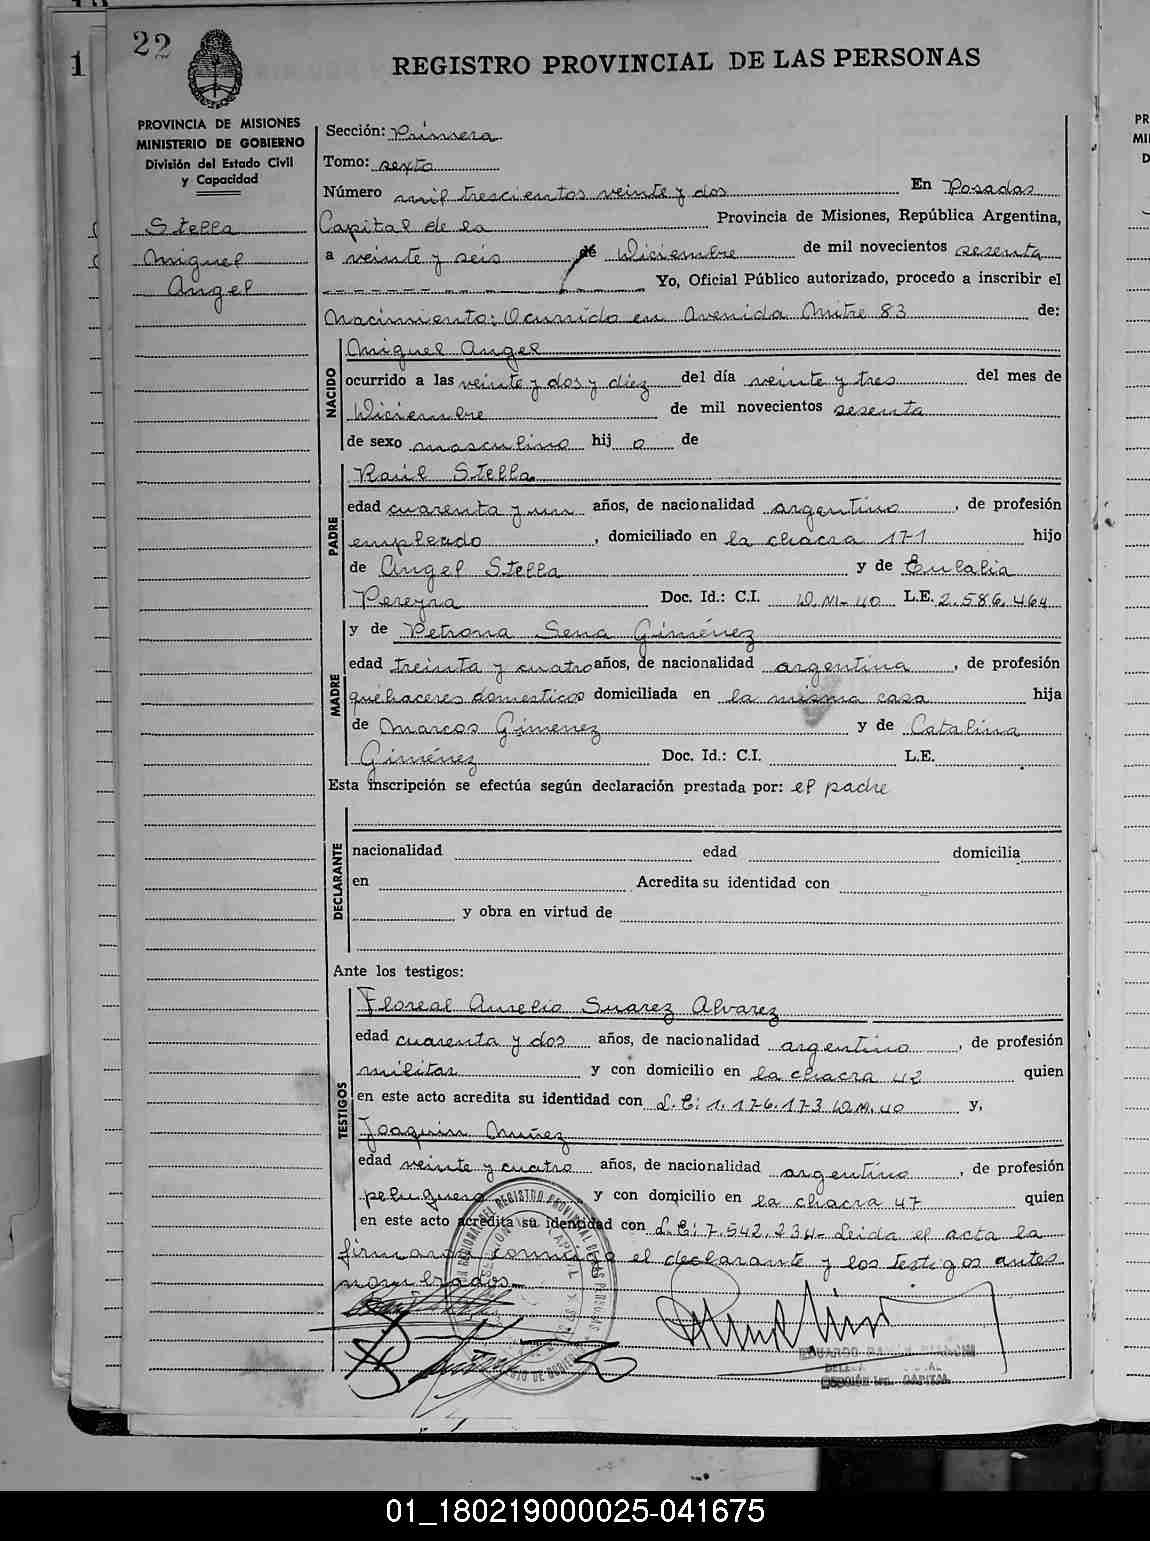 22
1
REGISTRO PROVINCIAL DE LAS PERSONAS
PROVINCIA DE MISIONES
MINISTERIO DE GOBIERNO
División del Estado Civil
y Capacidad
Stella
Miguel
Angel
Sección: Primera
Tomo: sexto
Número mil trescientos veinte y dos En Posadas
Capital de la Provincia de Misiones, República Argentina,
a veinte y seis de Diciembre de mil novecientos sesenta
Yo, Oficial Público autorizado, procedo a inscribir el
Nacimiento: Ocurrido en Avenida Mitre 83 de:
NACIDO
Miguel Angel
ocurrido a las veinte y dos y diez del día veinte y tres del mes de
Diciembre de mil novecientos sesenta
de sexo masculino hij o de
PADRE
Raúl Stella
edad cuarenta y un años, de nacionalidad argentino, de profesión
empleado, domiciliado en la chacra 171 hijo
de Angel Stella y de Eulalia
Pereyra Doc. Id.: C.I. D.M-40 L.E. 2.586.464
MADRE
y de Petrona Sena Giménez
edad treinta y cuatro años, de nacionalidad argentina, de profesión
quehaceres domesticos domiciliada en la misma casa hija
de Marcos Gimenez y de Catalina
Giménez Doc. Id.: C.I. L.E.
Esta inscripción se efectúa según declaración prestada por: el padre
DECLARANTE
nacionalidad edad domicilia
en Acredita su identidad con
y obra en virtud de
Ante los testigos:
TESTIGOS
Floreal Aurelio Suarez Alvarez
edad cuarenta y dos años, de nacionalidad argentino, de profesión
militar y con domicilio en la chacra 42 quien
en este acto acredita su identidad con L.E: 1.176.173 D.M.40 y,
Joaquin Muñez
edad veinte y cuatro años, de nacionalidad argentino, de profesión
peluquero y con domicilio en la chacra 47 quien
en este acto acredita su identidad con L.E: 7.542.234- Leida el acta la
firmaron conmigo el declarante y los testigos antes
nombrados
SECCIÓN 1ra. CAPITAL
01_180219000025-041675